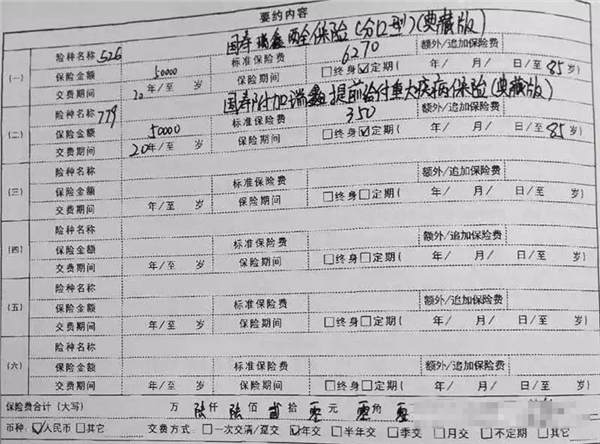 要约内容
险种名称 526 国寿瑞鑫两全保险(分红型)(典藏版)
(一) 保险金额 50000 标准保险费 6270 额外/追加保险费
交费期间 20 年/至 岁 保险期间 □终身☑定期( 年/ 月/ 日/至 85 岁)
险种名称 779 国寿附加瑞鑫提前给付重大疾病保险(典藏版)
(二) 保险金额 50000 标准保险费 350 额外/追加保险费
交费期间 20 年/至 岁 保险期间 □终身☑定期( 年/ 月/ 日/至 85 岁)
险种名称
(三) 保险金额 标准保险费 额外/追加保险费
交费期间 年/至 岁 保险期间 □终身□定期( 年/ 月/ 日/至 岁)
险种名称
(四) 保险金额 标准保险费 额外/追加保险费
交费期间 年/至 岁 保险期间 □终身□定期( 年/ 月/ 日/至 岁)
险种名称
(五) 保险金额 标准保险费 额外/追加保险费
交费期间 年/至 岁 保险期间 □终身□定期( 年/ 月/ 日/至 岁)
险种名称
(六) 保险金额 标准保险费 额外/追加保险费
交费期间 年/至 岁 保险期间 □终身□定期( 年/ 月/ 日/至 岁)
保险费合计(大写) 万 陆 仟 陆 佰 贰 拾 零 元 零 角 零
币种: ☑人民币 □其它 交费方式: □一次交清/趸交 ☑年交 □半年交 □季交 □月交 □不定期 □其它